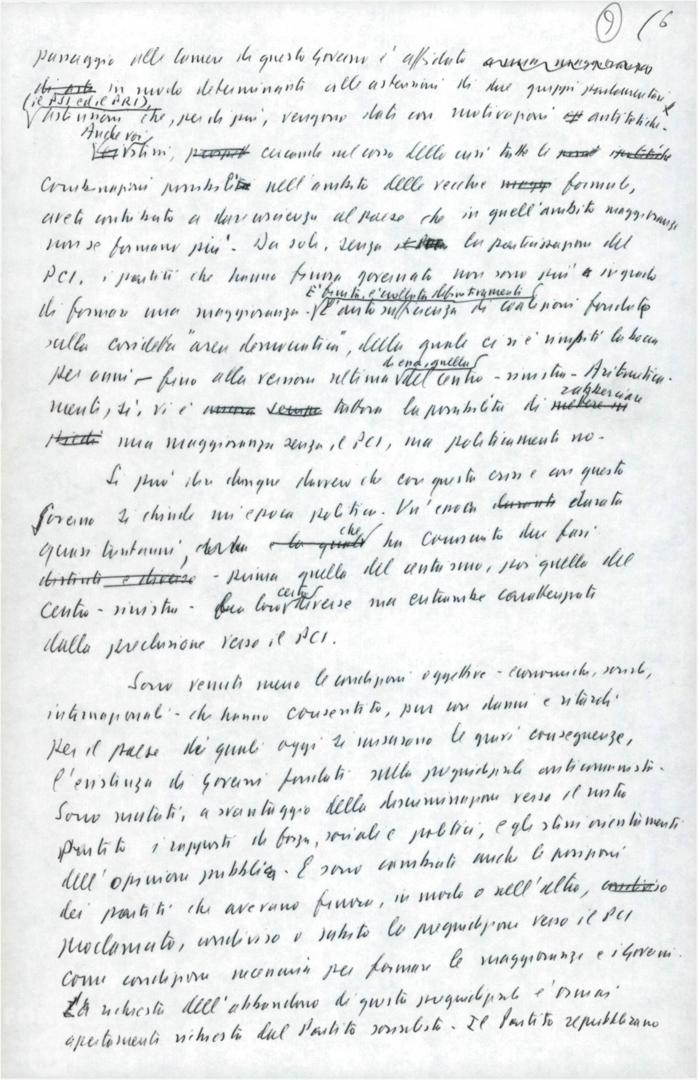 9 16
passaggio alle Camere di questo Governo è affidato
in modo determinante alle astensioni di due gruppi parlamentari
(il PSI ed il PRI),
astensioni che, per di più, vengono date con motivazioni antitetiche.
Anche voi
stessi, cercando nel corso della crisi tutte le
combinazioni possibili nell'ambito delle vecchie formule,
avete contribuito a dare coscienza al paese che in quell'ambito maggioranze
non se formano più. Da soli, senza la partecipazione del
PCI, i partiti che hanno finora governato non sono più in grado
È finita, è crollata definitivamente
di formare una maggioranza. L'autosufficienza di coalizioni fondate
sulla cosidetta "area democratica", della quale ci si è riempiti la bocca
di essa, quella
per anni - fino alla versione ultima del centro-sinistra. Aritmetica-
mente, sì, vi è tuttora la possibilità di
una maggioranza senza il PCI, ma politicamente no.
Si può dire dunque davvero che con questa crisi e con questo
Governo si chiude un'epoca politica. Un'epoca durata
che
quasi trent'anni, ha conosciuto due fasi
- prima quella del centrismo, poi quella del
certo
centro-sinistra - fra loro diverse ma entrambe caratterizzate
dalla preclusione verso il PCI.
Sono venute meno le condizioni oggettive - economiche, sociali,
internazionali - che hanno consentito, pur con danni e ritardi
per il paese dei quali oggi si misurano le gravi conseguenze,
l'esistenza di Governi fondati sulla pregiudiziale anticomunista.
Sono mutati, a svantaggio della discriminazione verso il nostro
partito i rapporti di forza, sociali e politici, e gli stessi orientamenti
dell'opinione pubblica. E sono cambiate anche le posizioni
dei partiti che avevano finora, in modo o nell'altro,
proclamato, condiviso o subito la pregiudiziale verso il PCI
come condizione necessaria per formare le maggioranze e i Governi.
La richiesta dell'abbandono di questa pregiudiziale è ormai
apertamente richiesta dal Partito socialista. Il Partito repubblicano